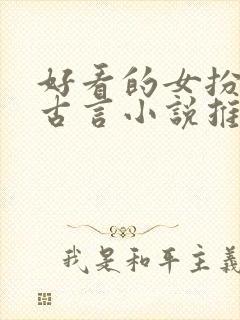 好看的女扮
古言小說推
我是和平主義